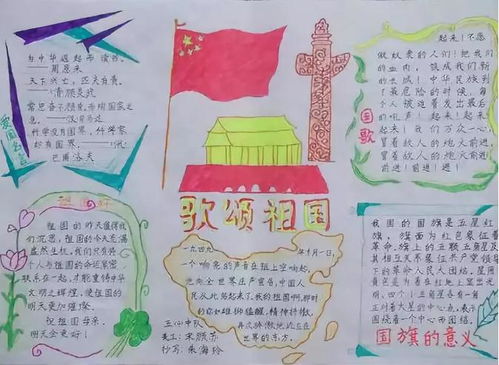 与中华崛起而读书。
周恩来
天下兴亡，匹夫有责。
——清顾炎武
常思奋不顾身，而殉国家之
急。——汉司马迁
科学没有国界，科学家
却有国界。——(俄)
巴甫洛夫
爱国名言
起来！不愿
做奴隶的人们！把我们
的血肉，筑成我们新
的长城！中华民族到
了最危险的时候，每
个人被迫着发出最后
的吼声！起来！起来！
起来！我们万众一心，
冒着敌人的炮火前进
冒着敌人的炮火前进！
前进！前进！进！
国歌
歌颂祖国
祖国的昨天值得我
们沉思，祖国的今天充满
盎然生机，我们只有将
个人与祖国的命运紧密
联系在一起，才能重铸中华
文明之辉煌，使祖国的
明天更加璀璨。
祝祖国母亲，
明天会更好！
一九四九年十月一日，
一个响亮的声音在祖上空响起，
他向全世界庄严宣告，中国人
民从此站起来了，我的祖国啊，那时
的你如雄狮猛醒，精神抖擞，
再次骄傲地屹立在
世界的东方。
五(2)中队
美工：宋颜苏
抄写：朱海玲
我国的国旗是五星红
旗，旗面为红色象征着
革命。旗上的五颗五角星及
其相互关系象征共产党领导
下的革命人民大团结，星用
黄色是为着在红地上显出光
明，四个小五角星各有一角
正对着大星的中心点，表示
围绕着一个中心而团结。
国旗的意义